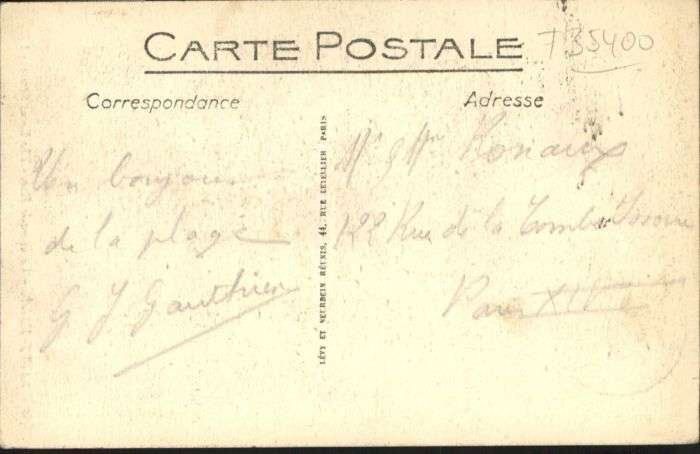 CARTE POSTALE
T35400
Correspondance
Adresse
Un bonjour
de la plage
G J Gauthier
LÉVY ET NEURDEIN RÉUNIS, 44, RUE LETELLIER PARIS
Mr & Mme
122 Rue de la Tombe Issoire
Paris